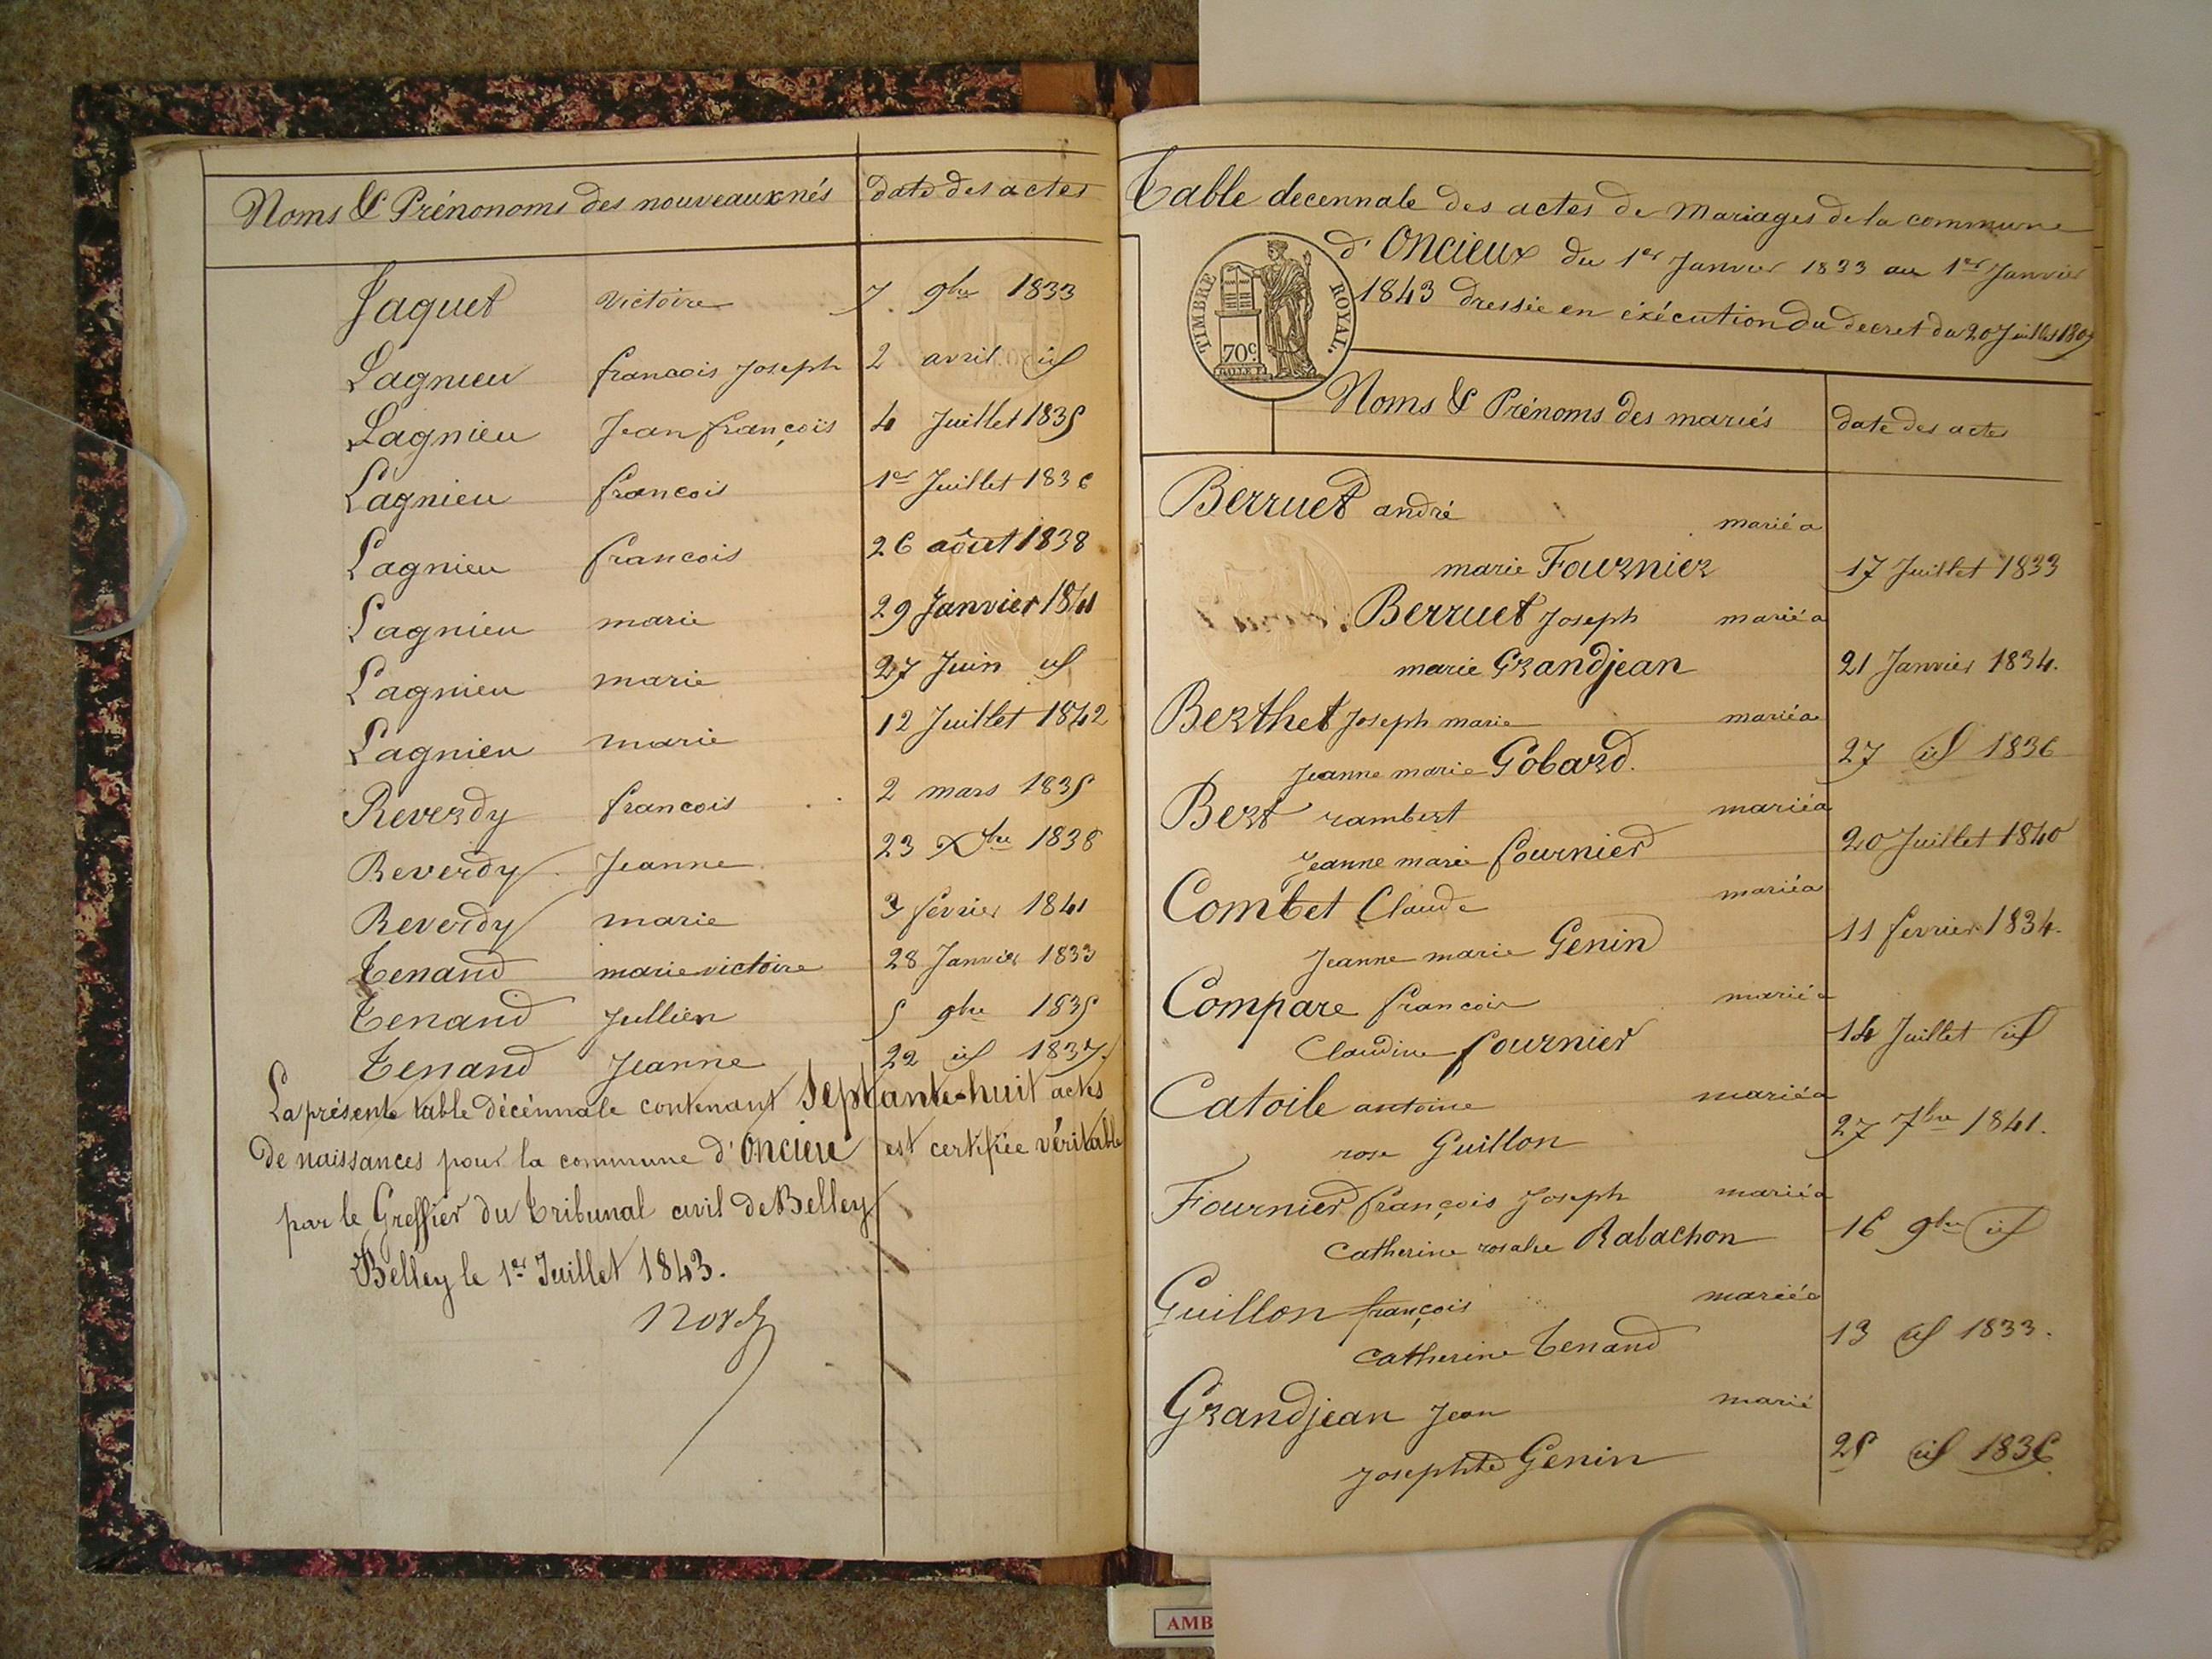 Noms & Prénonoms des nouveaux nés date des actes
Jaquet victoire 7. 9bre 1833
Lagnieu francois Joseph 2 avril id
Lagnieu Jean françois 4 Juillet 1835
Lagnieu francois 1er Juillet 1836
Lagnieu francois 26 août 1838
Lagnieu marie 29 Janvier 1841
Lagnieu marie 27 Juin id
Lagnieu marie 12 Juillet 1842
Reverdy francois 2 mars 1835
Reverdy Jeanne 23 Xbre 1838
Reverdy marie 3 fevrier 1841
Tenand marie victoire 28 Janvier 1833
Tenand Jullien 5 9bre 1835
Tenand Jeanne 22 id 1837.
La présente table décénnale contenant Septante-huit actes
de naissances pour la commune d'Oncieu est certifiée véritable
par le Greffier du Tribunal civil de Belley
Belley le 1er Juillet 1843.
Table decennale des actes de Mariages de la commune
d'Oncieux du 1er Janvier 1833 au 1er Janvier
1843 dressée en éxécution du decret du 20 Juillet 1807
TIMBRE ROYAL.
70c.
Noms & Prénoms des mariés date des actes
Berruet andré marié a
marie Fournier 17 Juillet 1833
Berruet Joseph marié a
marie Grandjean 21 Janvier 1834.
Berthet Joseph marie marié a
Jeanne marie Gobard. 27 id 1836
Bert rambert marié a
Jeanne marie fournier 20 Juillet 1840
Combet Claude marié a
Jeanne marie Genin 11 fevrier 1834.
Compare francois marié a
Claudine fournier 14 Juillet id
Catoile antoine marié a
rose Guillon 27 7bre 1841.
Fournier françois Joseph marié a
Catherine rosalie Rabachon 16 9bre id
Guillon françois marié a
Catherine Tenand 13 id 1833.
Grandjean Jean marié
Josephte Genin 25 id 1836
AMB